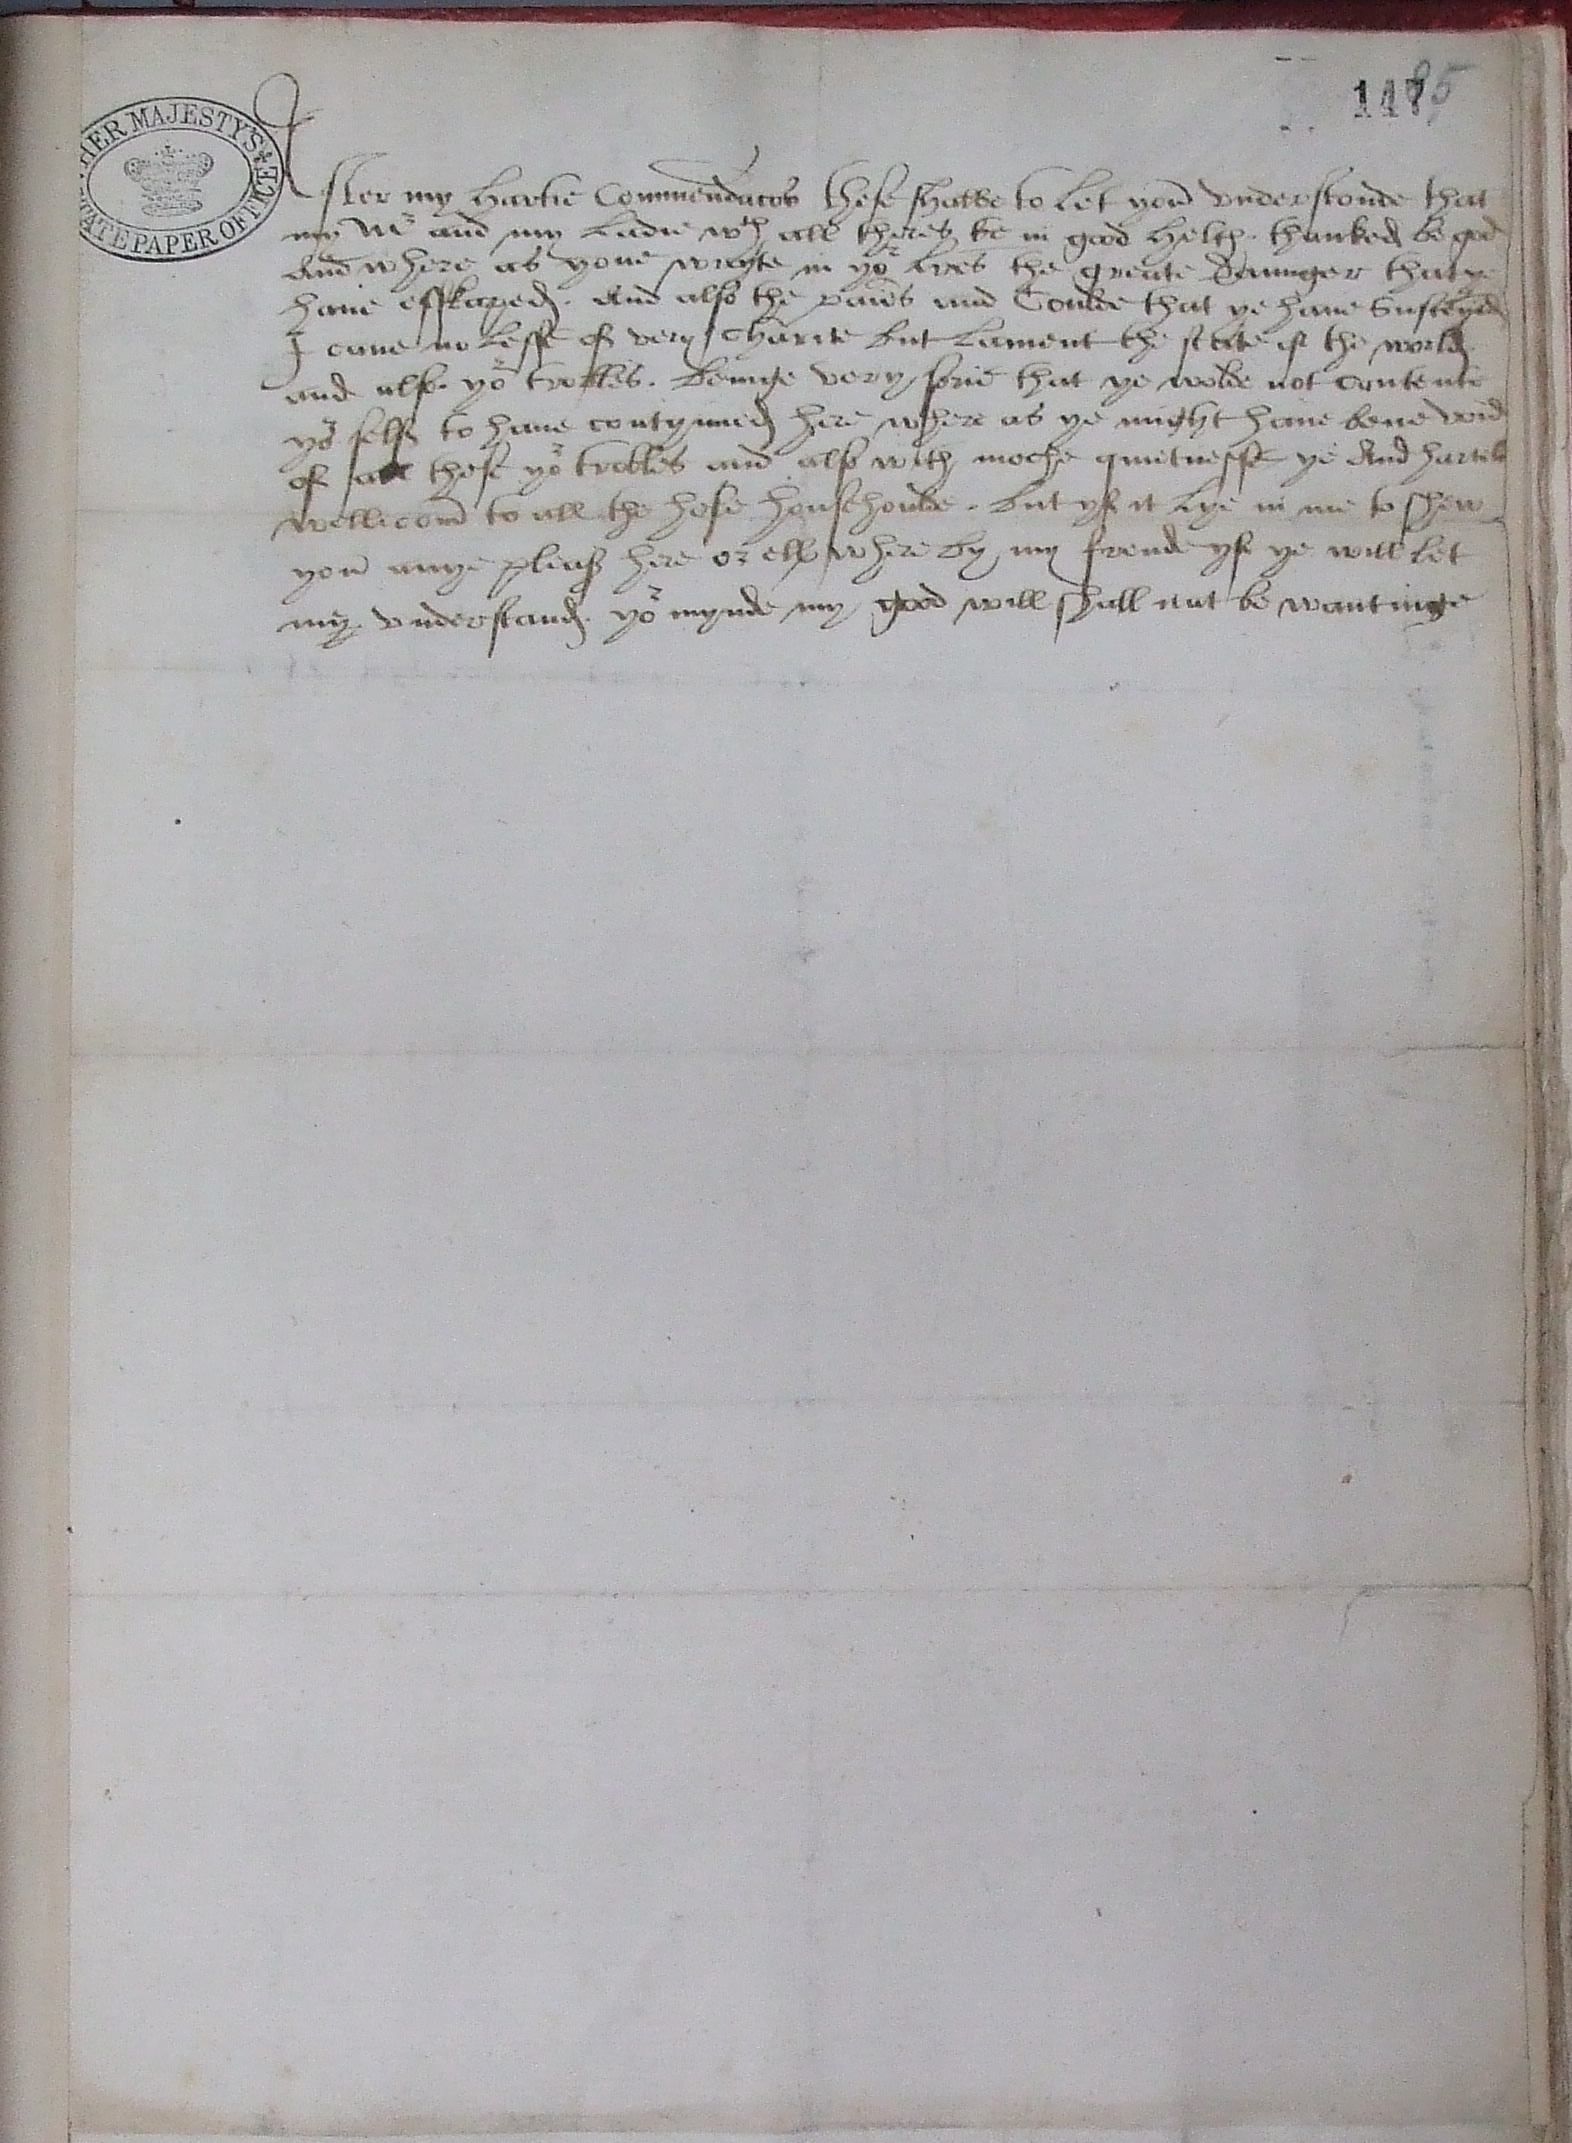 HER MAJESTY'S
STATE PAPER OFFICE
147
85
After my hartie Commendacōs these shalbe to let yoū understonde that
my Mr and my Ladie wth all theres be in good helth thanked be god
And where as youe wrayte in yor lr̄es the greate daunger that ye
have esskaped. And also the paiēs and Coulde that ye have Susteyned
I cane no lesse of very Charite but Lament the state of the world
and also yor trobles. beinge very sorie that ye wolde not contente
yor self to have contynued here where as ye might have bene void
of all these yor trobles and also with moche quietnesse ye And hartele
wellicom to all the hole househoulde. but yf it lye in me to shew
yoū anye pleasr here or ells where by my frende yf ye will let
me understand yor mynde my good will shall not be wantinge